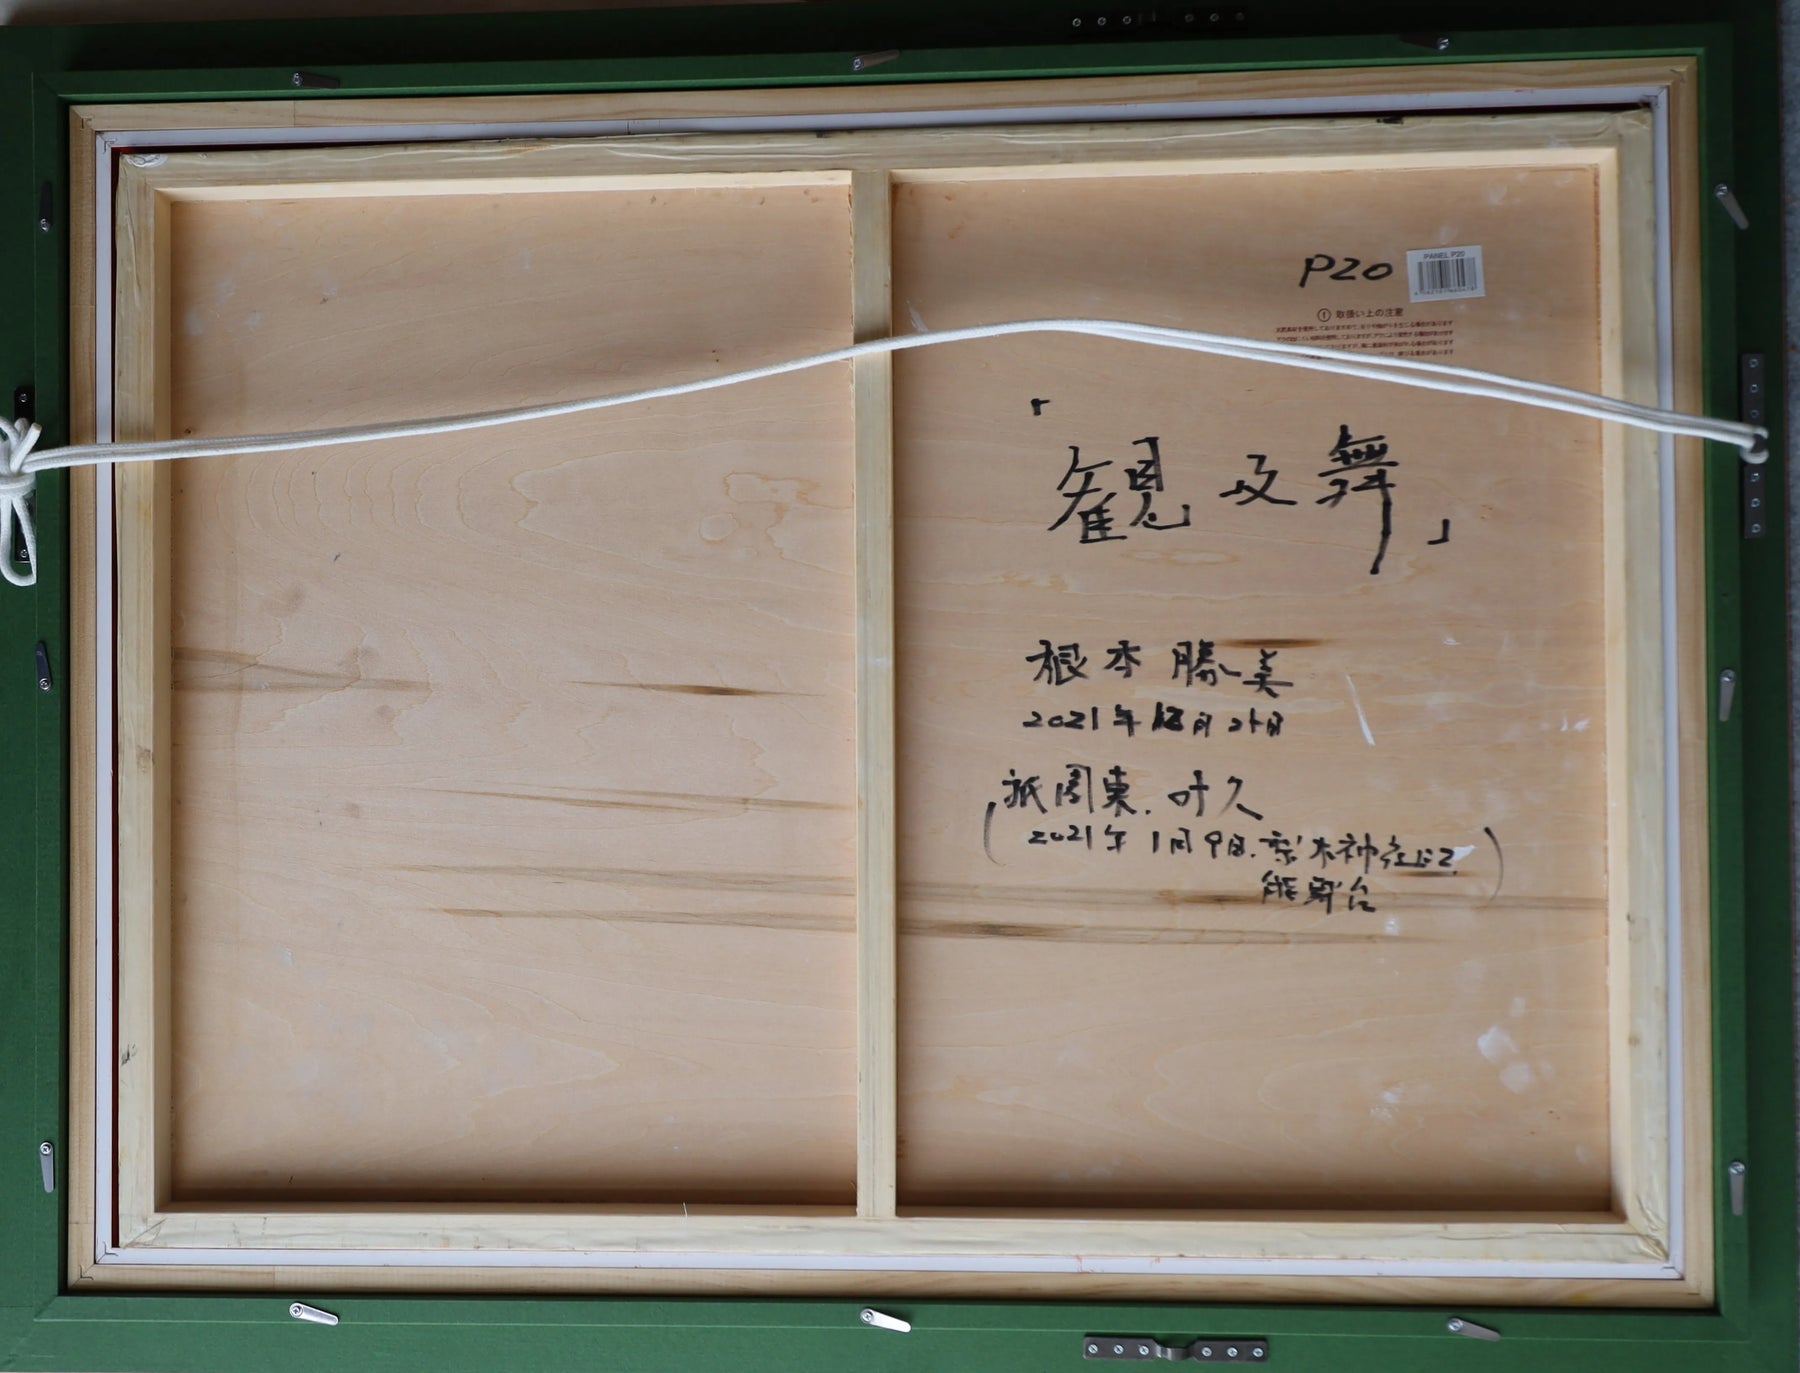 P20
PANEL P20
取扱い上の注意
「観及舞」
根本 勝美
2021年12月21日
祇園東. 叶久
(2021年1月9日. 梨木神社にて.
能舞台)